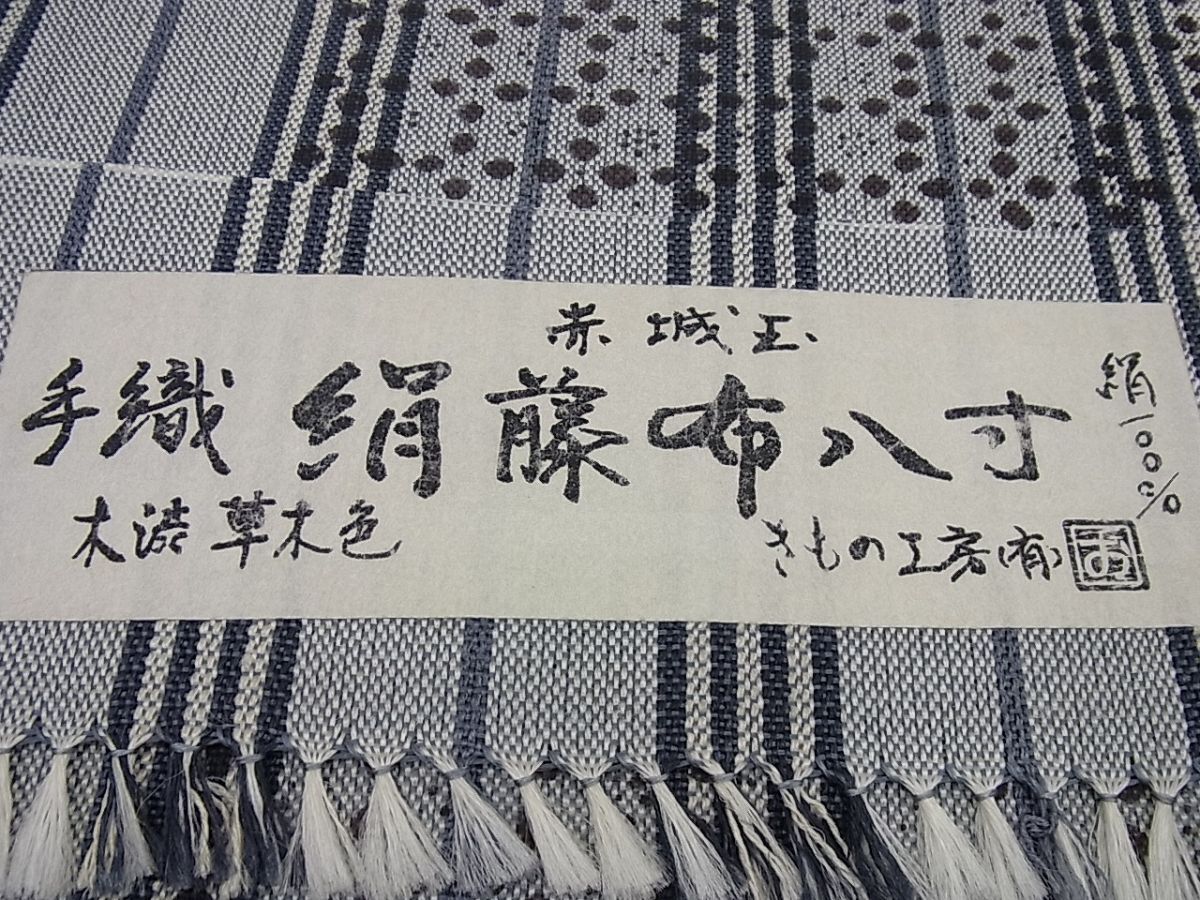 赤城玉
手織 絹藤布八寸
絹100%
木渋 草木色
きもの工房(有)